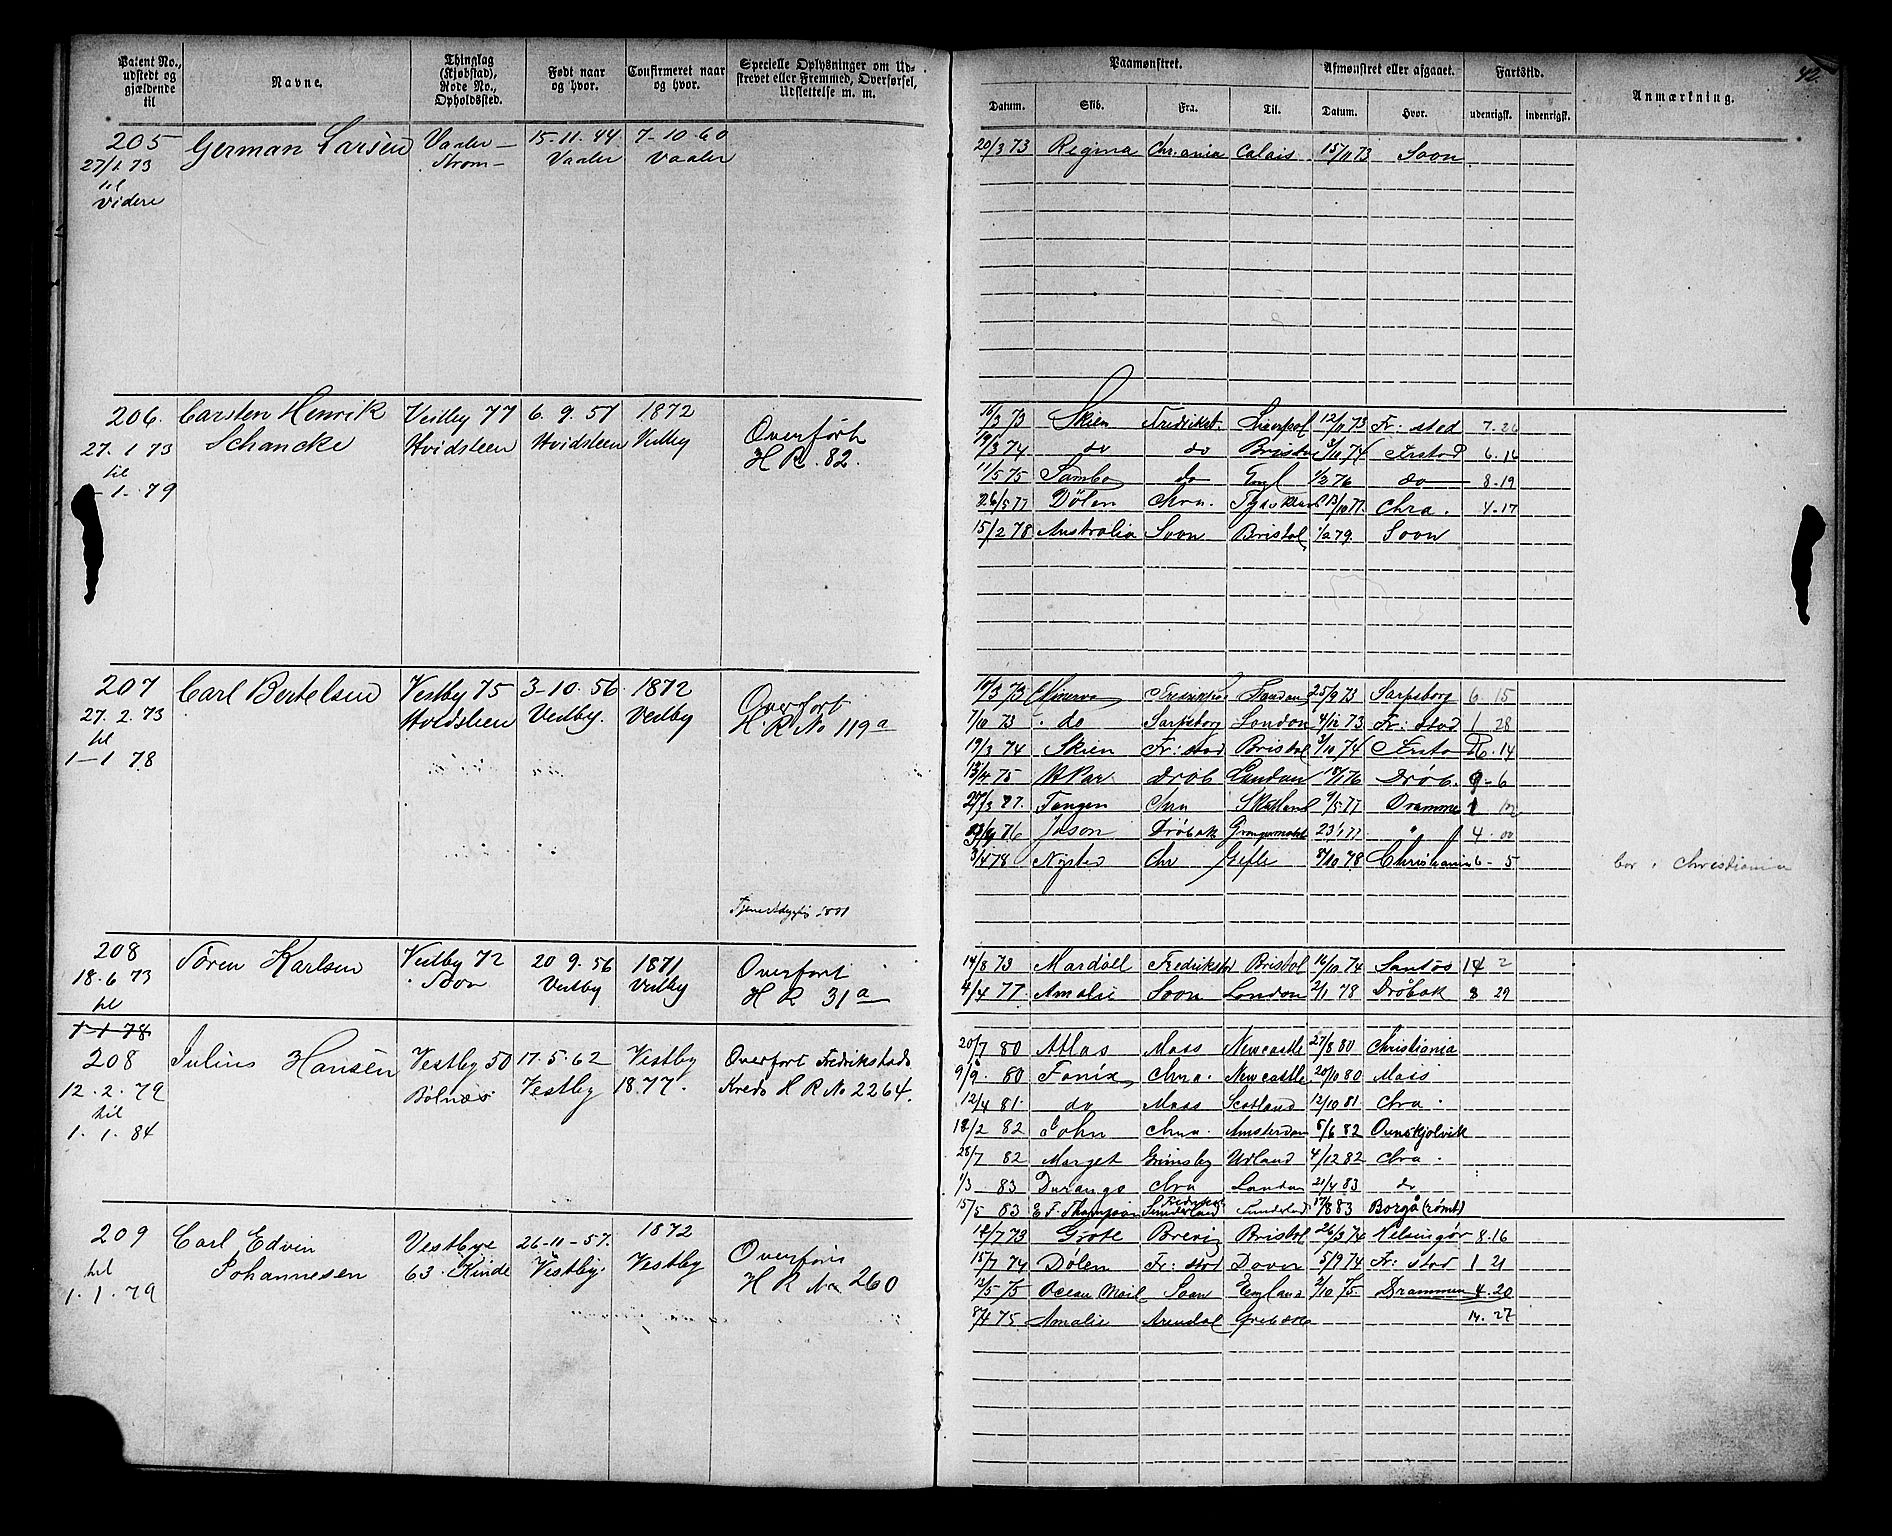 Patent No., udstedt og gjældende til
Navne.
Thinglag (Kjøbstad), Rode No., Opholdssted.
Født naar og hvor.
Confirmeret naar og hvor.
Specielle Oplysninger om Udskrevet eller Fremmed, Overførsel, Udslettelse m. m.
205 German Larsen Vaaler — 15-11-44. 7-10-60
27/1.73 Strom— Vaaler Vaaler
til
videre
206. Carsten Henrik Vestby 77 6. 9. 57 1872
27. 1 73 Schancke Hvidsteen Hvidsteen Vestby Overført
til H R. 82.
1-1. 79
207 Carl Bertelsen Vestby 75 3-10. 56. 1872
27. 2. 73 Hvidsteen Vestby. Vestby Overført
til H R No 119a
1-1 78
208 Søren Karlsen Vestby 72 20 9. 56 1871
18. 6 73 Vestby Vestby Overført
til H R 31a
1-1 78
208 Julius Hansen Vestby 50 17. 5. 62 Vestby Overført Fredrikstads
12. 2. 79 Bølnæs Vestby 1877. Kreds H R No 2264.
til
1. 1. 84
209 Carl Edvin Vestbye 26-11-57. 1872
til Johannesen 63. Kinde Vestby. Vestby Overføris
1. 1. 79 H R No 260
42.
Paamønstret.
Afmønstret eller afgaaet.
Fartstid.
Anmærkning.
Datum. Skib. Fra. Til. Datum. Hvor. udenrigsk. indenrigsk.
20/3 73 Regina Chr.ania Calais 15/11 73 Soon
16/3 73 Skien Fredrikst. Liverpol 12/11 73 Fr: stad 7. 26
19/3 74 do do Bristol 3/10 74 Frstad 6. 14
11/5 75 Sambo do Engl 1/2 76 do 8. 19
26/5 77 Dølen Chra. 13/10 77. Chra. 4. 17
15/2 78 Australia Soon Bristol 1/2 79. Soon
17/3 73 Minerva London 25/9 73 Sarpsborg 6. 15
7/10 73 do Sarpsborg London 4/12 73 Fr: stad 1 28
19/3 74 Skien Fr: stad Bristol 3/10 74 Frstad 6. 14
13/4 75 Drøb London 18/1 76 Drøb. 9 - 6
27/3 77. Tangen Chra Skotland 9/5 77 Drammen 1
Jason Drøbak 23/1 77 " 4. 00
3/4 78 Nysted Chr Gefle 8/10 78 Christiania 6 - 5
bor i Christiania
14/8 73 Mardøll Fredrikstad Bristol 16/10 74 Santos 14 2
4/4 77. Amalie Soon London 2/1 78 Drøbak 8 29
20/7 80 Atlas Moss Newcastle 27/8 80 Christiania
9/9. 80 Fønix Chra. Newcastle. 20/10 80 Moss
12/4 81. do Moss Scotland 12/10 81 Chra.
18/2 82 John Chra. Amsterdam 5/6 82 Ornskjolvik
28/7 82 Marget Grimsby Udland 4/12 82 Chra.
1/3 83 Durango Chra London 21/4 83 do
15/5 83 E F. Thompson Sunderland Fredrikst Sundsvd 17/8 83 Borgå (rømt)
12/7 73 Grote Brevig Bristol 26/3 74 Helsingør 8. 16
15/7 74 Dølen Fr: stad Dover 5/9 74 Fr: stad 1 21
12/5 75 Ocean Mail Soon England 2/10 75 Drammen 4. 20
8/4 75 Amalie Arendal 14. 27